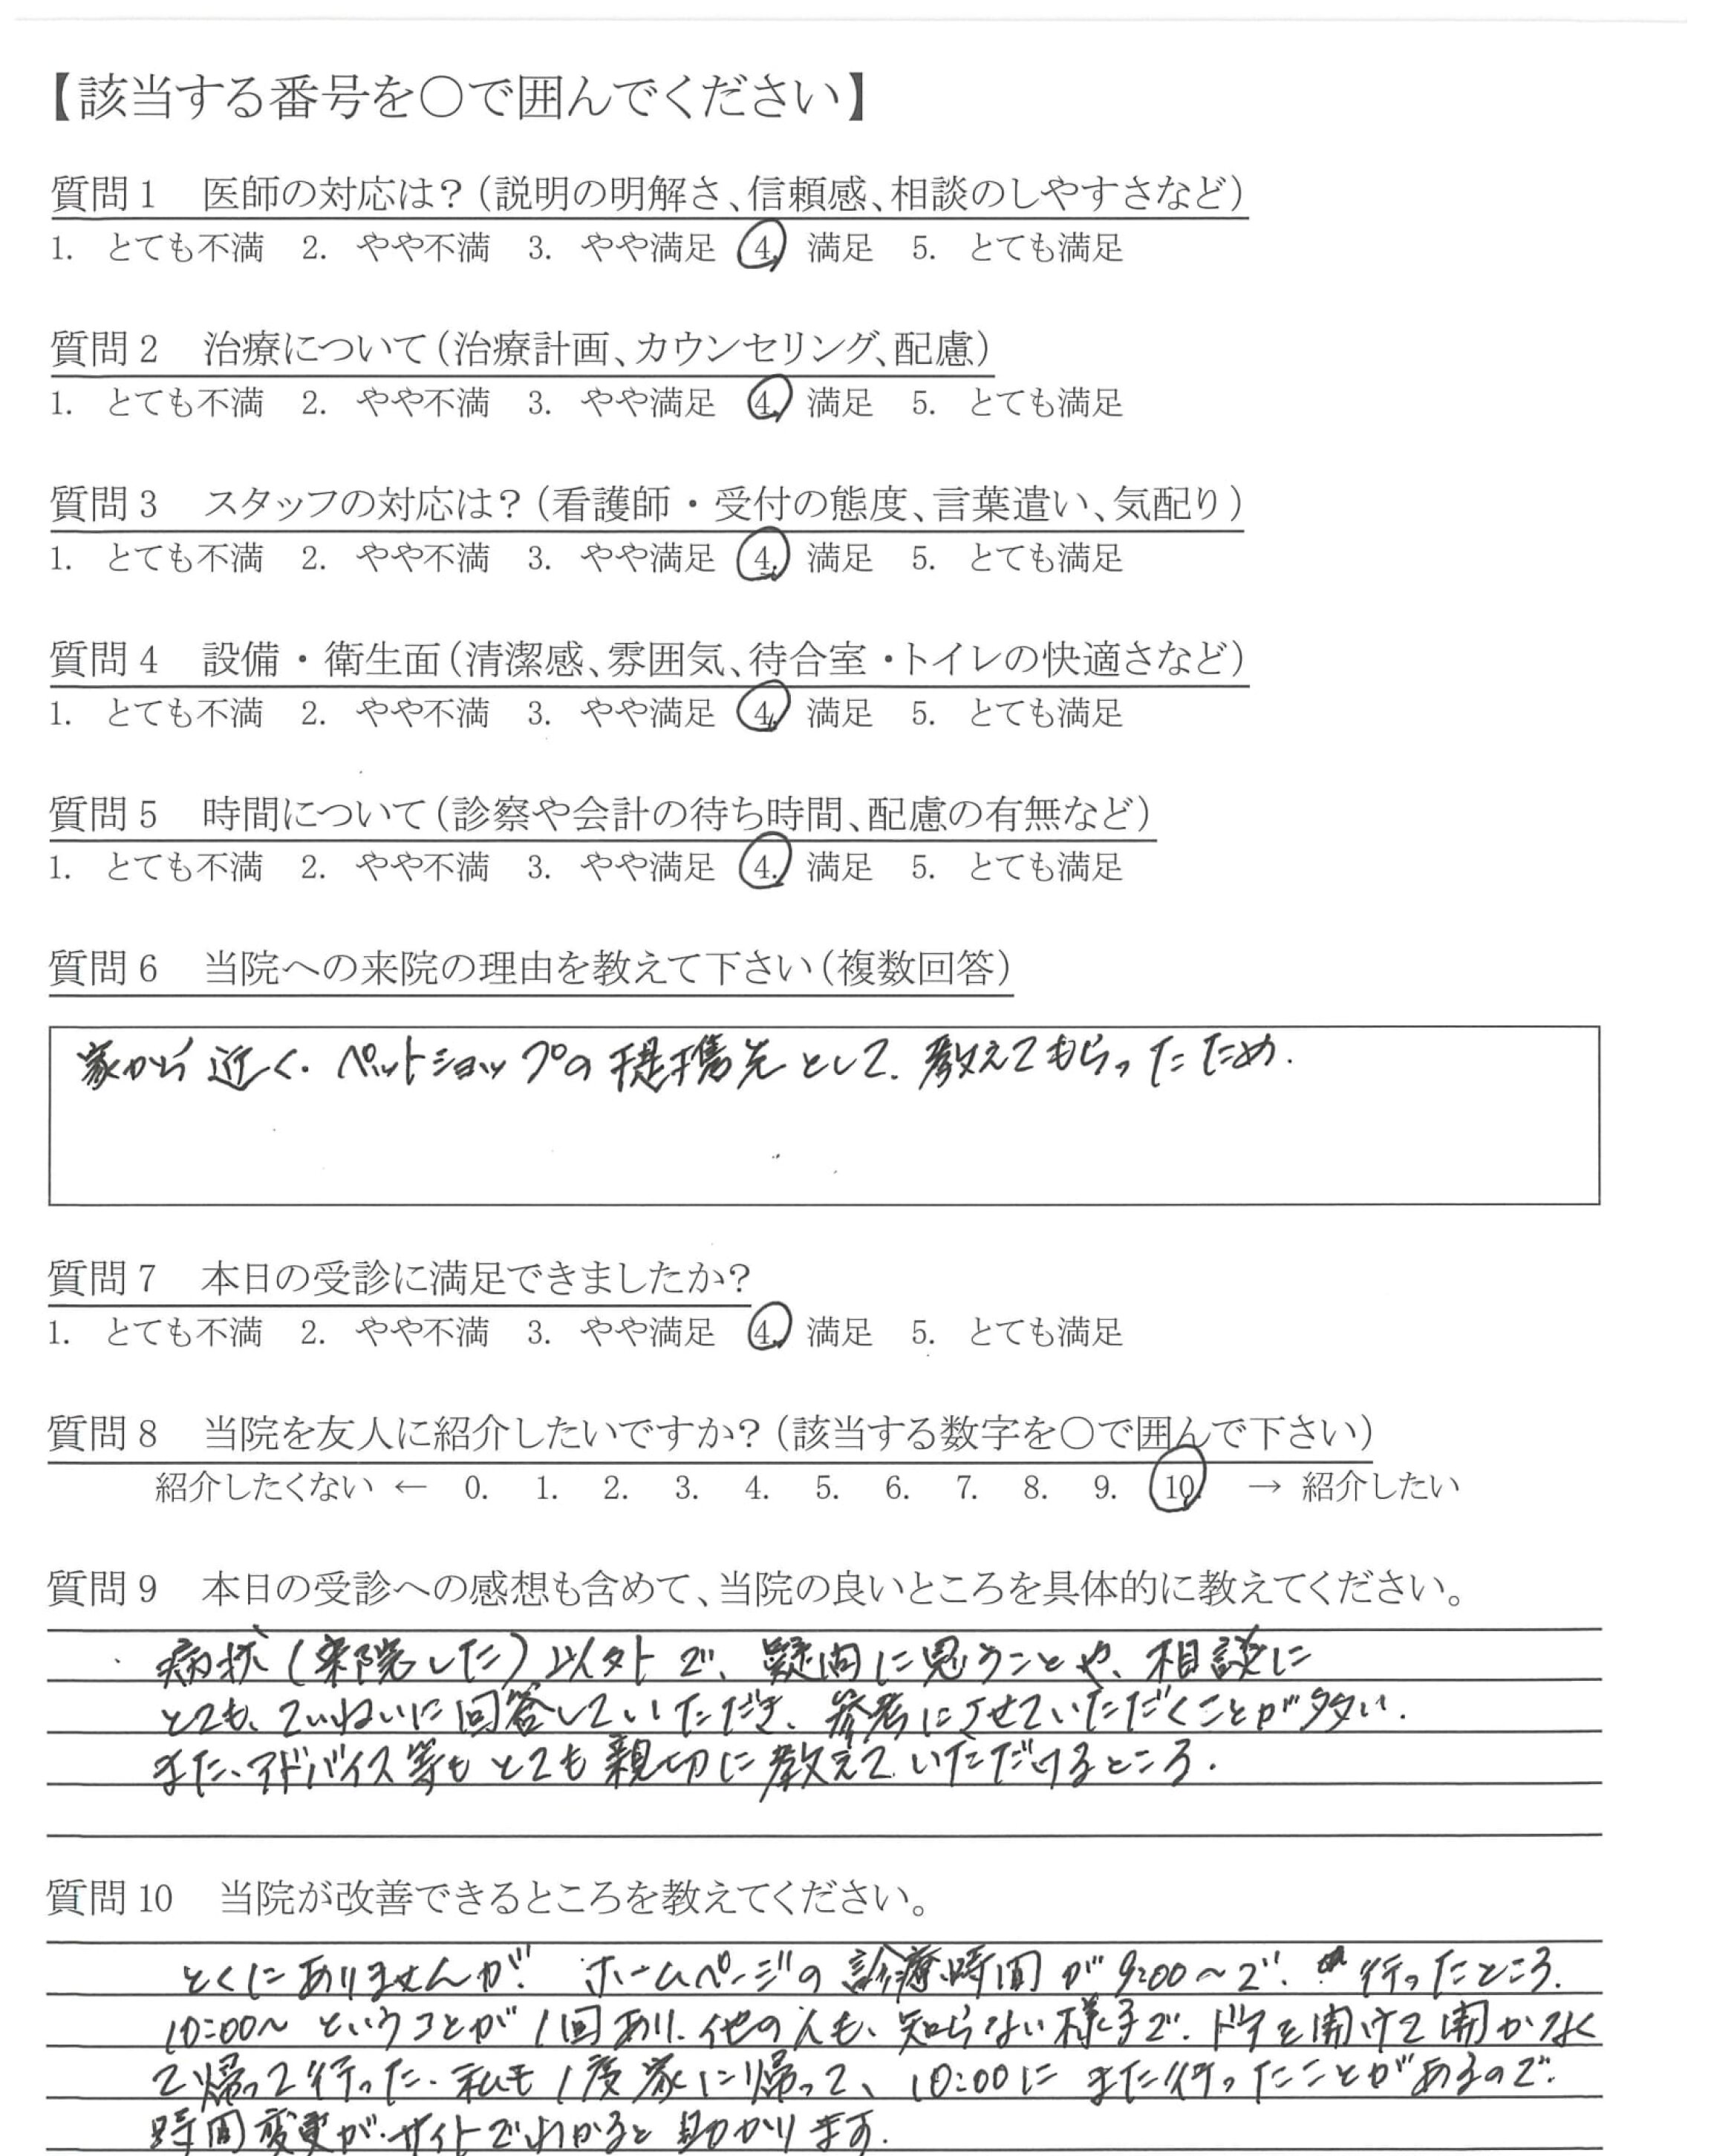 【該当する番号を〇で囲んでください】
質問1 医師の対応は?(説明の明解さ、信頼感、相談のしやすさなど)
1. とても不満 2. やや不満 3. やや満足 4. 満足 5. とても満足
質問2 治療について(治療計画、カウンセリング、配慮)
1. とても不満 2. やや不満 3. やや満足 4. 満足 5. とても満足
質問3 スタッフの対応は?(看護師・受付の態度、言葉遣い、気配り)
1. とても不満 2. やや不満 3. やや満足 4. 満足 5. とても満足
質問4 設備・衛生面(清潔感、雰囲気、待合室・トイレの快適さなど)
1. とても不満 2. やや不満 3. やや満足 4. 満足 5. とても満足
質問5 時間について(診察や会計の待ち時間、配慮の有無など)
1. とても不満 2. やや不満 3. やや満足 4. 満足 5. とても満足
質問6 当院への来院の理由を教えて下さい(複数回答)
家から近く、ペットショップの提携先として、教えてもらったため.
質問7 本日の受診に満足できましたか?
1. とても不満 2. やや不満 3. やや満足 4. 満足 5. とても満足
質問8 当院を友人に紹介したいですか?(該当する数字を〇で囲んで下さい)
紹介したくない ← 0. 1. 2. 3. 4. 5. 6. 7. 8. 9. 10. → 紹介したい
質問9 本日の受診への感想も含めて、当院の良いところを具体的に教えてください。
病状(来院した)以外で、疑問に思うことや、相談に
とても、ていねいに回答していただき、参考にさせていただくことが多い.
また、アドバイス等もとても親切に教えていただけるところ.
質問10 当院が改善できるところを教えてください。
とくにありませんが、ホームページの診療時間が9:00〜で、行ったところ、
10:00〜ということが1回あり、他の人も、知らない様子で、ドアを開けて開かなく
て帰って行った. 私も1度家に帰って、10:00にまた行ったことがあるので、
時間変更が、サイトでわかると助かります.